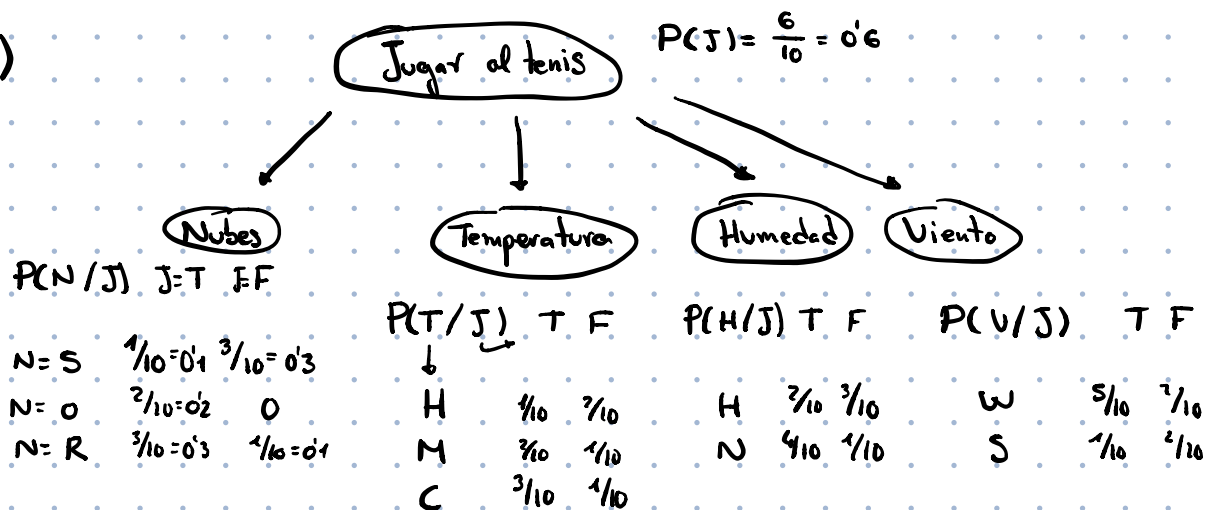 )
Jugar al tenis
P(J) = 6/10 = 0'6
Nubes
Temperatura
Humedad
Viento
P(N/J) J=T J=F
N=S 1/10=0'1 3/10=0'3
N=O 2/10=0'2 0
N=R 3/10=0'3 1/10=0'1
P(T/J) T F
H 1/10 2/10
M 2/10 1/10
C 3/10 1/10
P(H/J) T F
H 2/10 3/10
N 4/10 1/10
P(V/J) T F
W 5/10 2/10
S 1/10 2/10